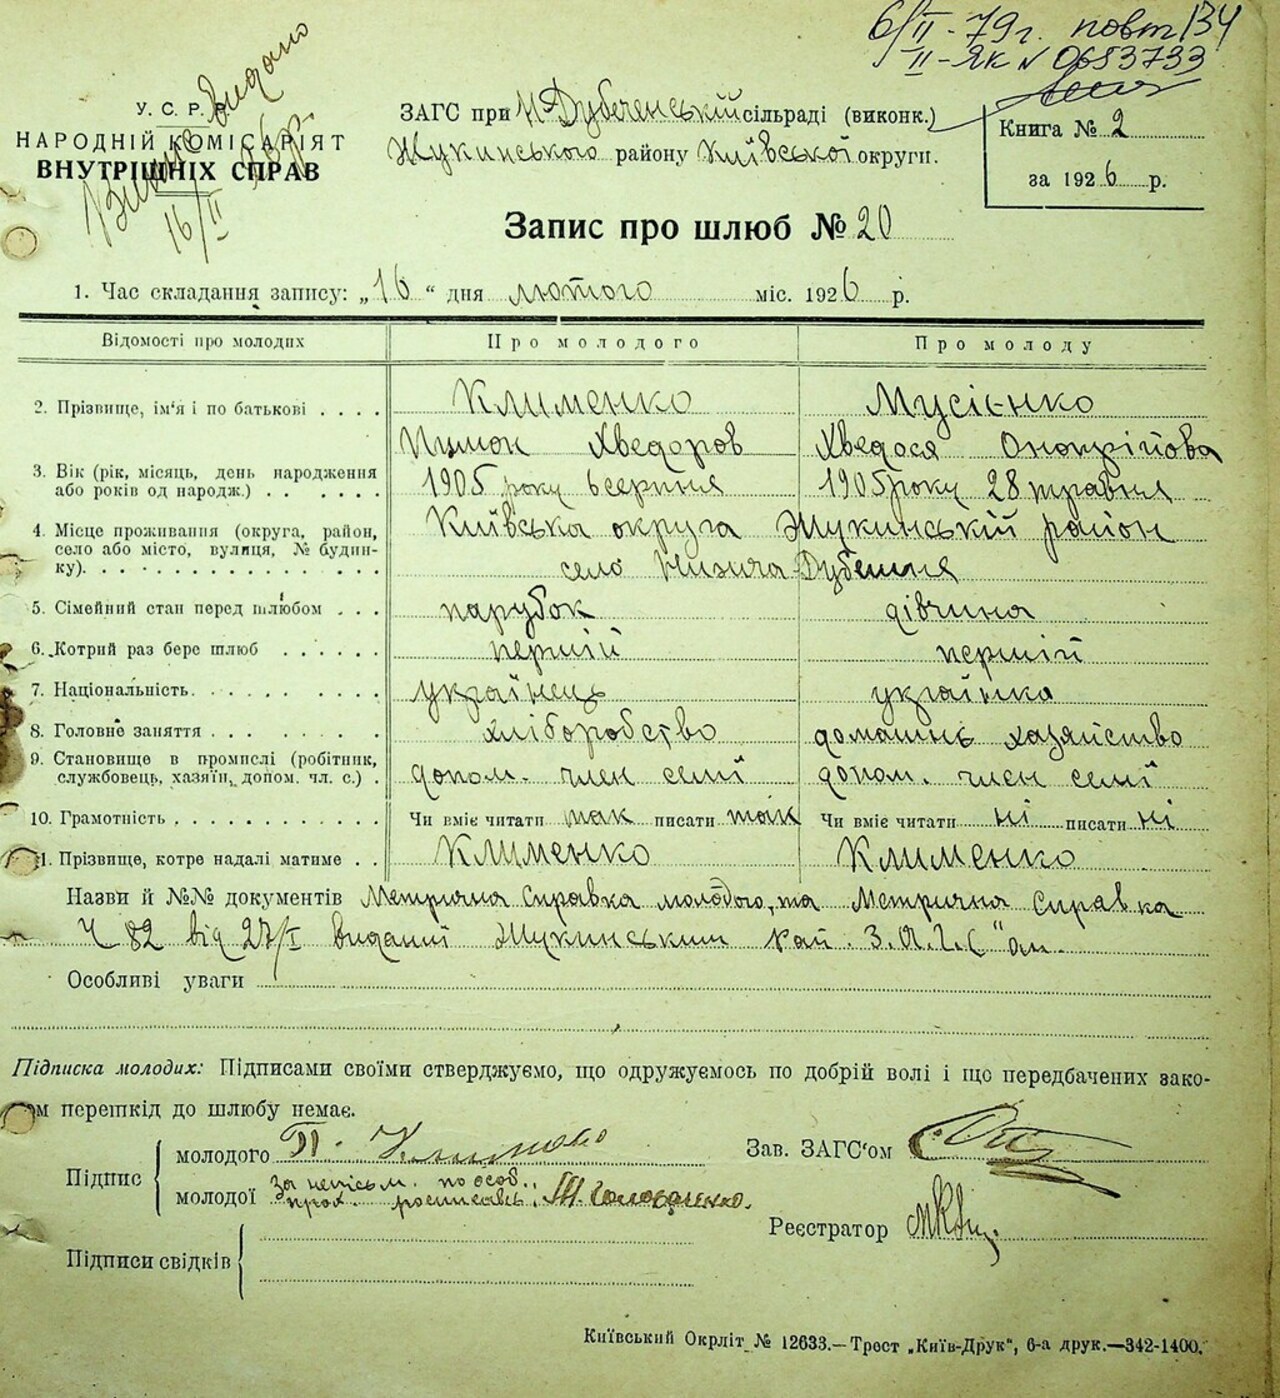 6/II-79г. повт 134
II-ЯК N 0683733
У. С. Р. Р.
НАРОДНІЙ КОМІСАРІЯТ
ВНУТРІШНІХ СПРАВ
видано
16/II
ЗАГС при Н Дубеченській сільраді (виконк.)
Жукинського району Київської округи.
Книга № 2
за 1926 р.
Запис про шлюб № 20
1. Час складання запису: „16“ дня лютого міс. 1926 р.
Відомості про молодих
Про молодого
Про молоду
2. Прізвище, ім'я і по батькові . . . .
Клименко
Мусієнко
Хведоров
Хведося Онопрійова
3. Вік (рік, місяць, день народження
або років од народж.) . . . . . .
1905 року 6 серпня
1905 року 28 травня
4. Місце проживання (округа, район,
село або місто, вулиця, № будин-
ку). . . . . . . . . . . . . . . .
Київська округа Жукинській район
село Низича Дубешня
5. Сімейний стан перед шлюбом . . .
парубок
дівчина
6. Котрий раз бере шлюб . . . . . .
першій
першій
7. Національність. . . . . . . . . .
українець
українка
8. Головне заняття . . . . . . . .
хліборобство
домашнє хазяйство
9. Становище в промислі (робітник,
службовець, хазяїн, допом. чл. с.) .
допом. член семї
допом. член семї
10. Грамотність . . . . . . . . . . . .
Чи вміє читати так писати так
Чи вміє читати ні писати ні
11. Прізвище, котре надалі матиме . .
Клименко
Клименко
Назви й №№ документів Метрична Справка молодого, та Метрична Справка
Ч 82 від 27/I видані Жукинським Рай. З.А.Г.С"ом.
Особливі уваги
Підписка молодих: Підписами своїми стверджуємо, що одружуємось по добрій волі і що передбачених зако-
ом перешкід до шлюбу немає.
Підпис
молодого П. Клименко
молодої За неписьм. по особ.
прох. росписавсь. Головаченко.
Зав. ЗАГС'ом
Реєстратор
Підписи свідків
Київський Окрліт № 12633.—Трест „Київ-Друк“, 6-а друк.—342-1400.